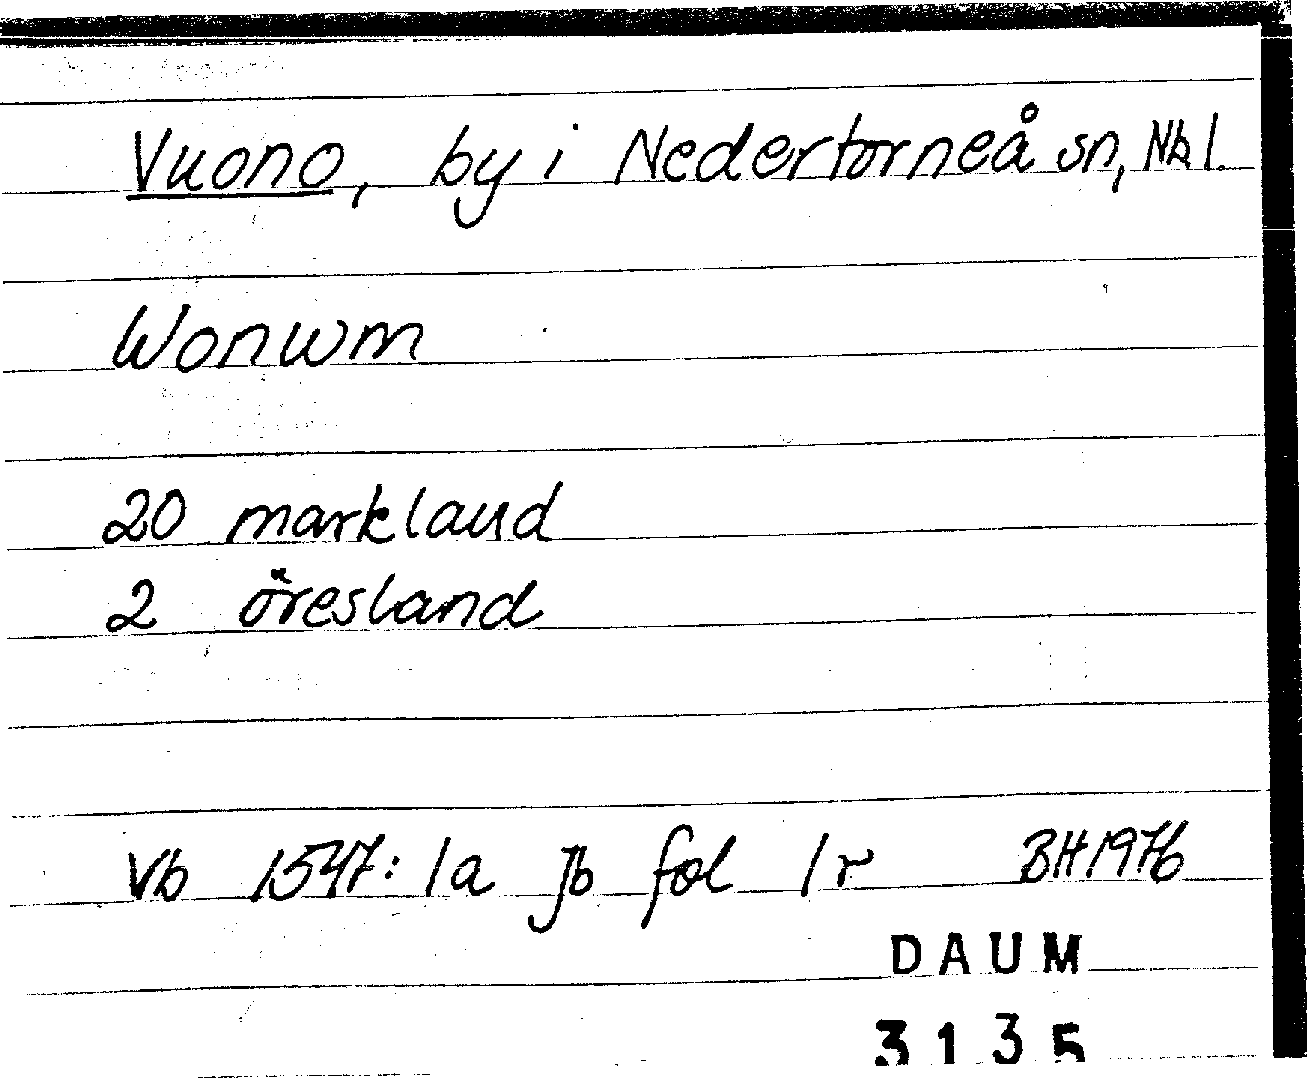 Vuono, by i Nedertorneå sn, Nb l.
Wonwm
20 markland
2 öresland
Vb 1547: 1a Jb fol 1r BH 1976
DAUM
3135